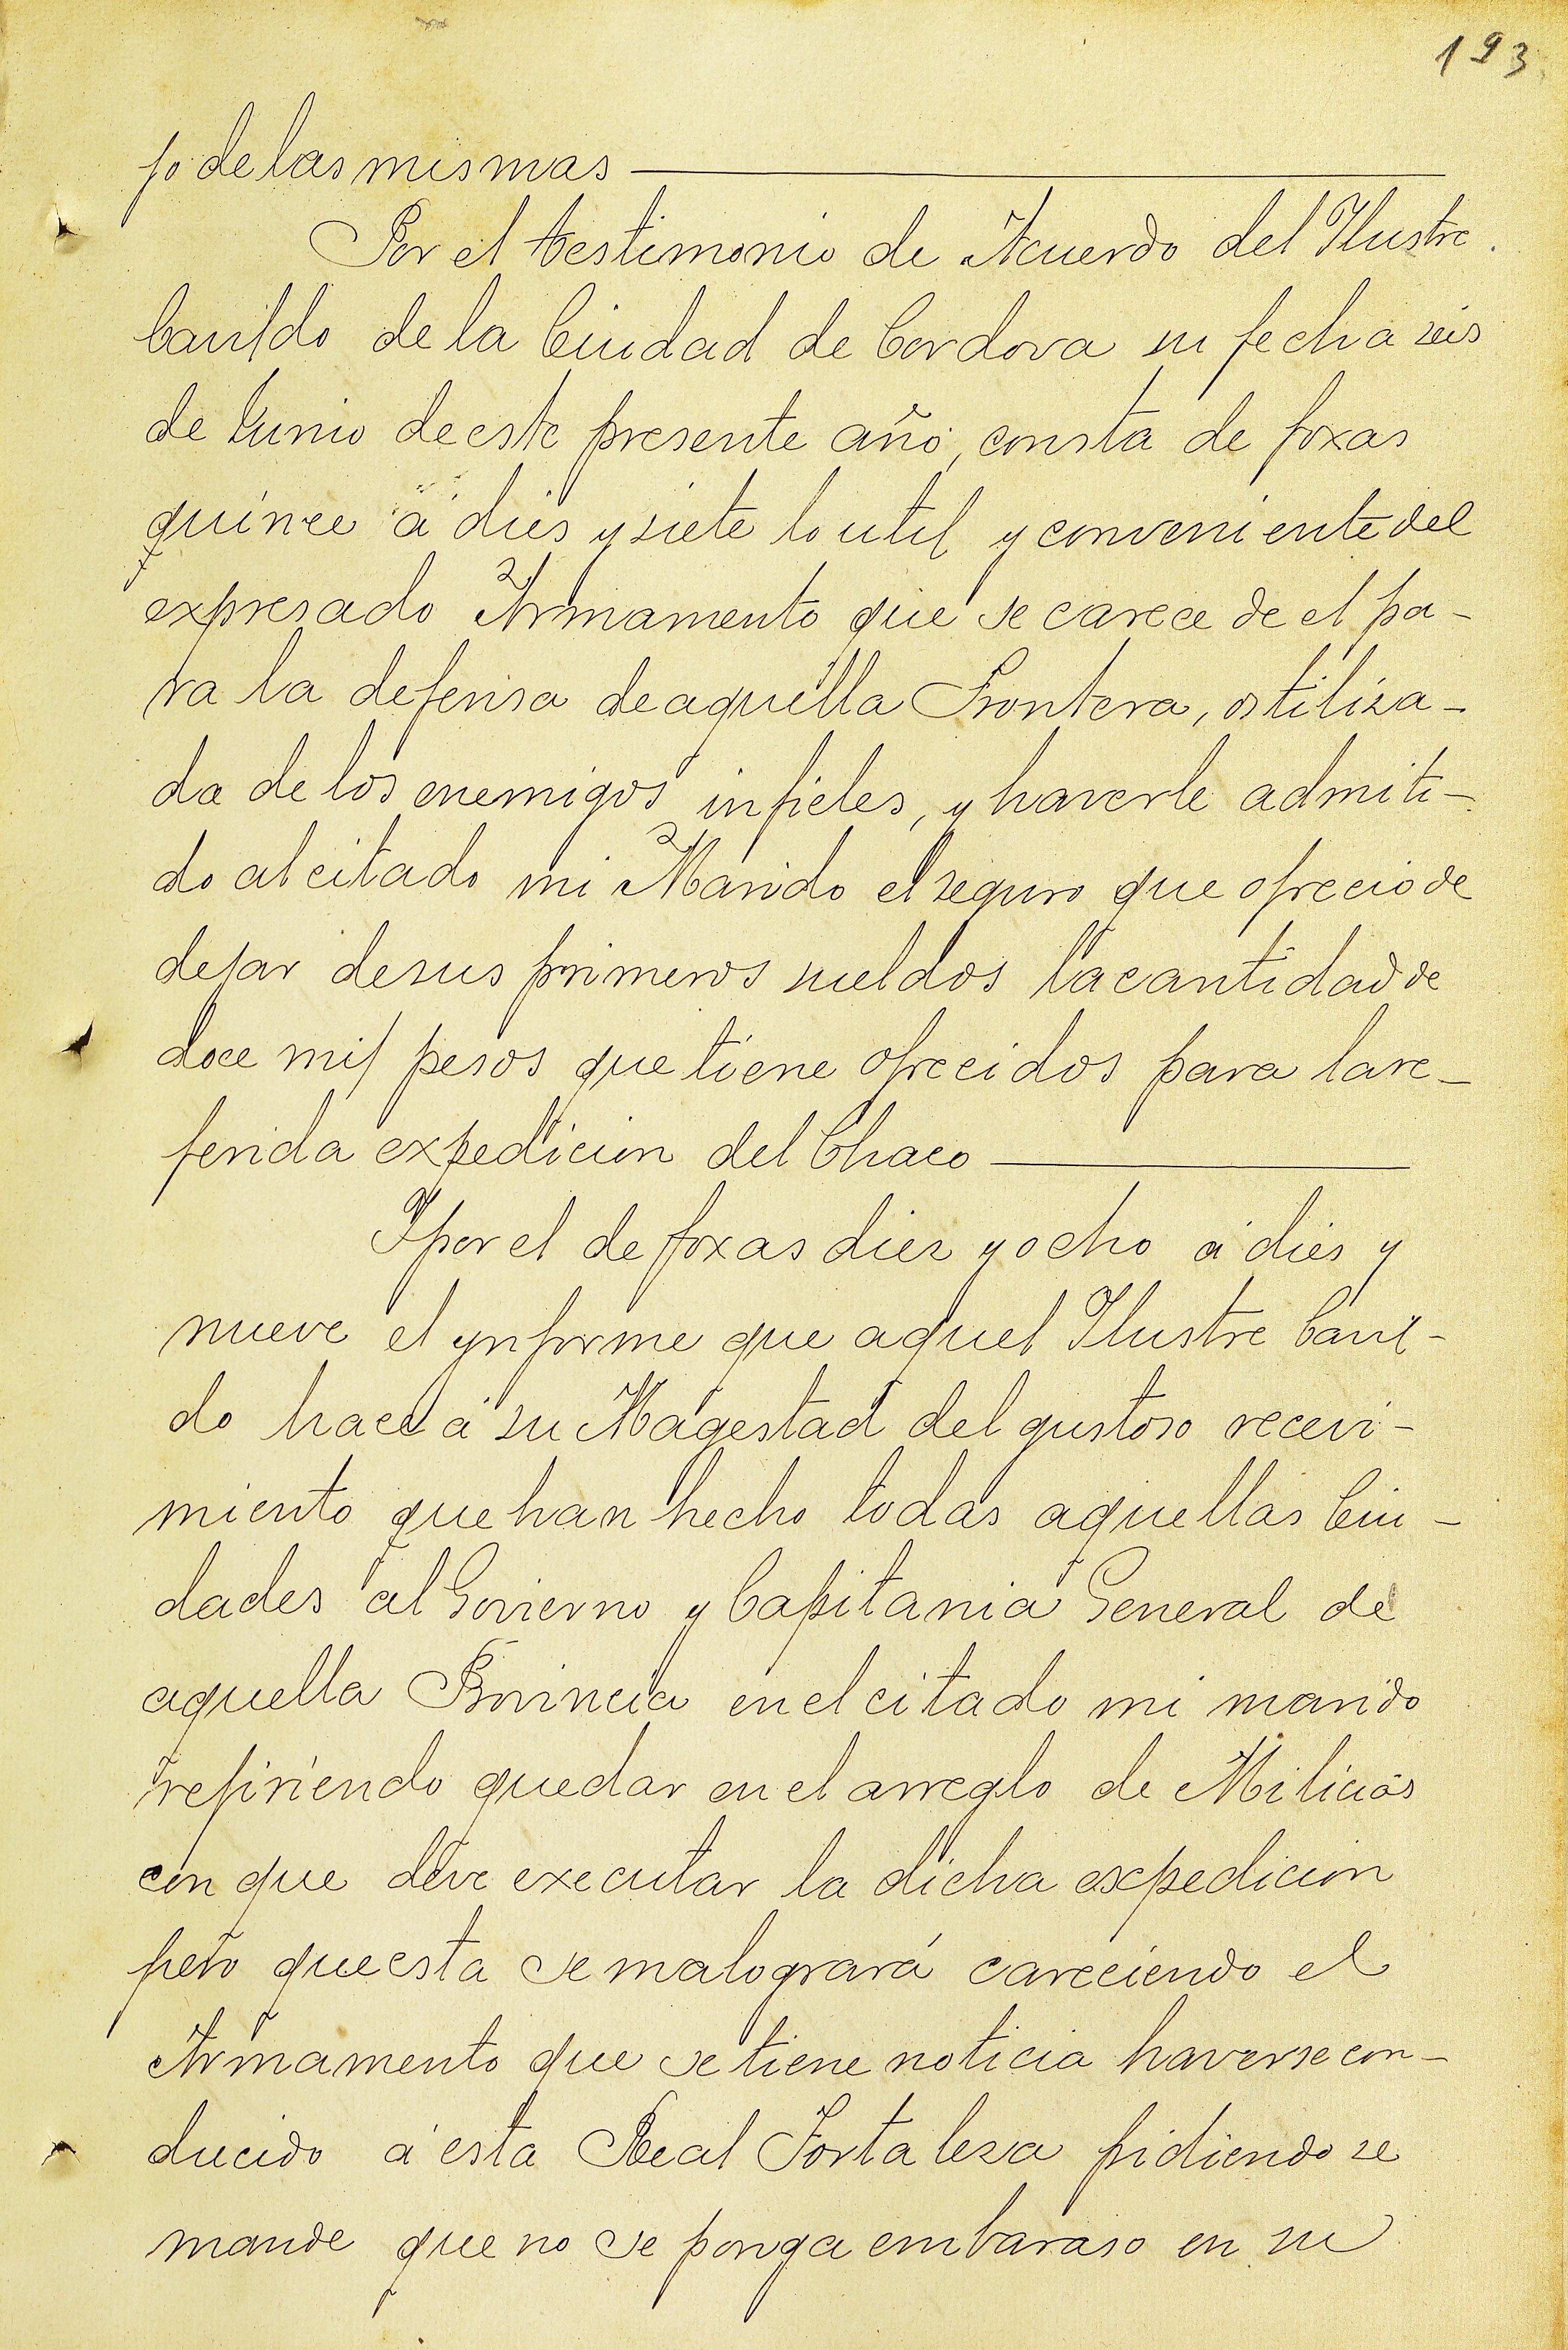 193
jo de las mismas
Por el testimonio de Acuerdo del Ilustre
Cavildo de la Ciudad de Cordova su fecha seis
de Junio de este presente año, consta de foxas
quince á dies y siete lo util y conveniente del
expresado Armamento que se carece de el pa-
ra la defensa de aquella Frontera, ostiliza-
da de los enemigos infieles, y haverle admiti-
do al citado mi Marido el seguro que ofrecio de
dejar de sus primeros sueldos la cantidad de
doce mil pesos que tiene ofrecidos para la re-
ferida expedicion del Chaco
Y por el de foxas diez y ocho á dies y
nueve el ynforme que aquel Ilustre Cavil-
do hace á su Magestad del gustoso recevi-
miento que han hecho todas aquellas Ciu-
dades al Govierno y Capitania General de
aquella Provincia en el citado mi marido
refiriendo quedar en el arreglo de Milicias
con que deve executar la dicha expedicion
pero que esta se malogrará careciendo el
Armamento que se tiene noticia haverse con-
ducido á esta Real Fortaleza pidiendo se
mande que no se ponga embaraso en su